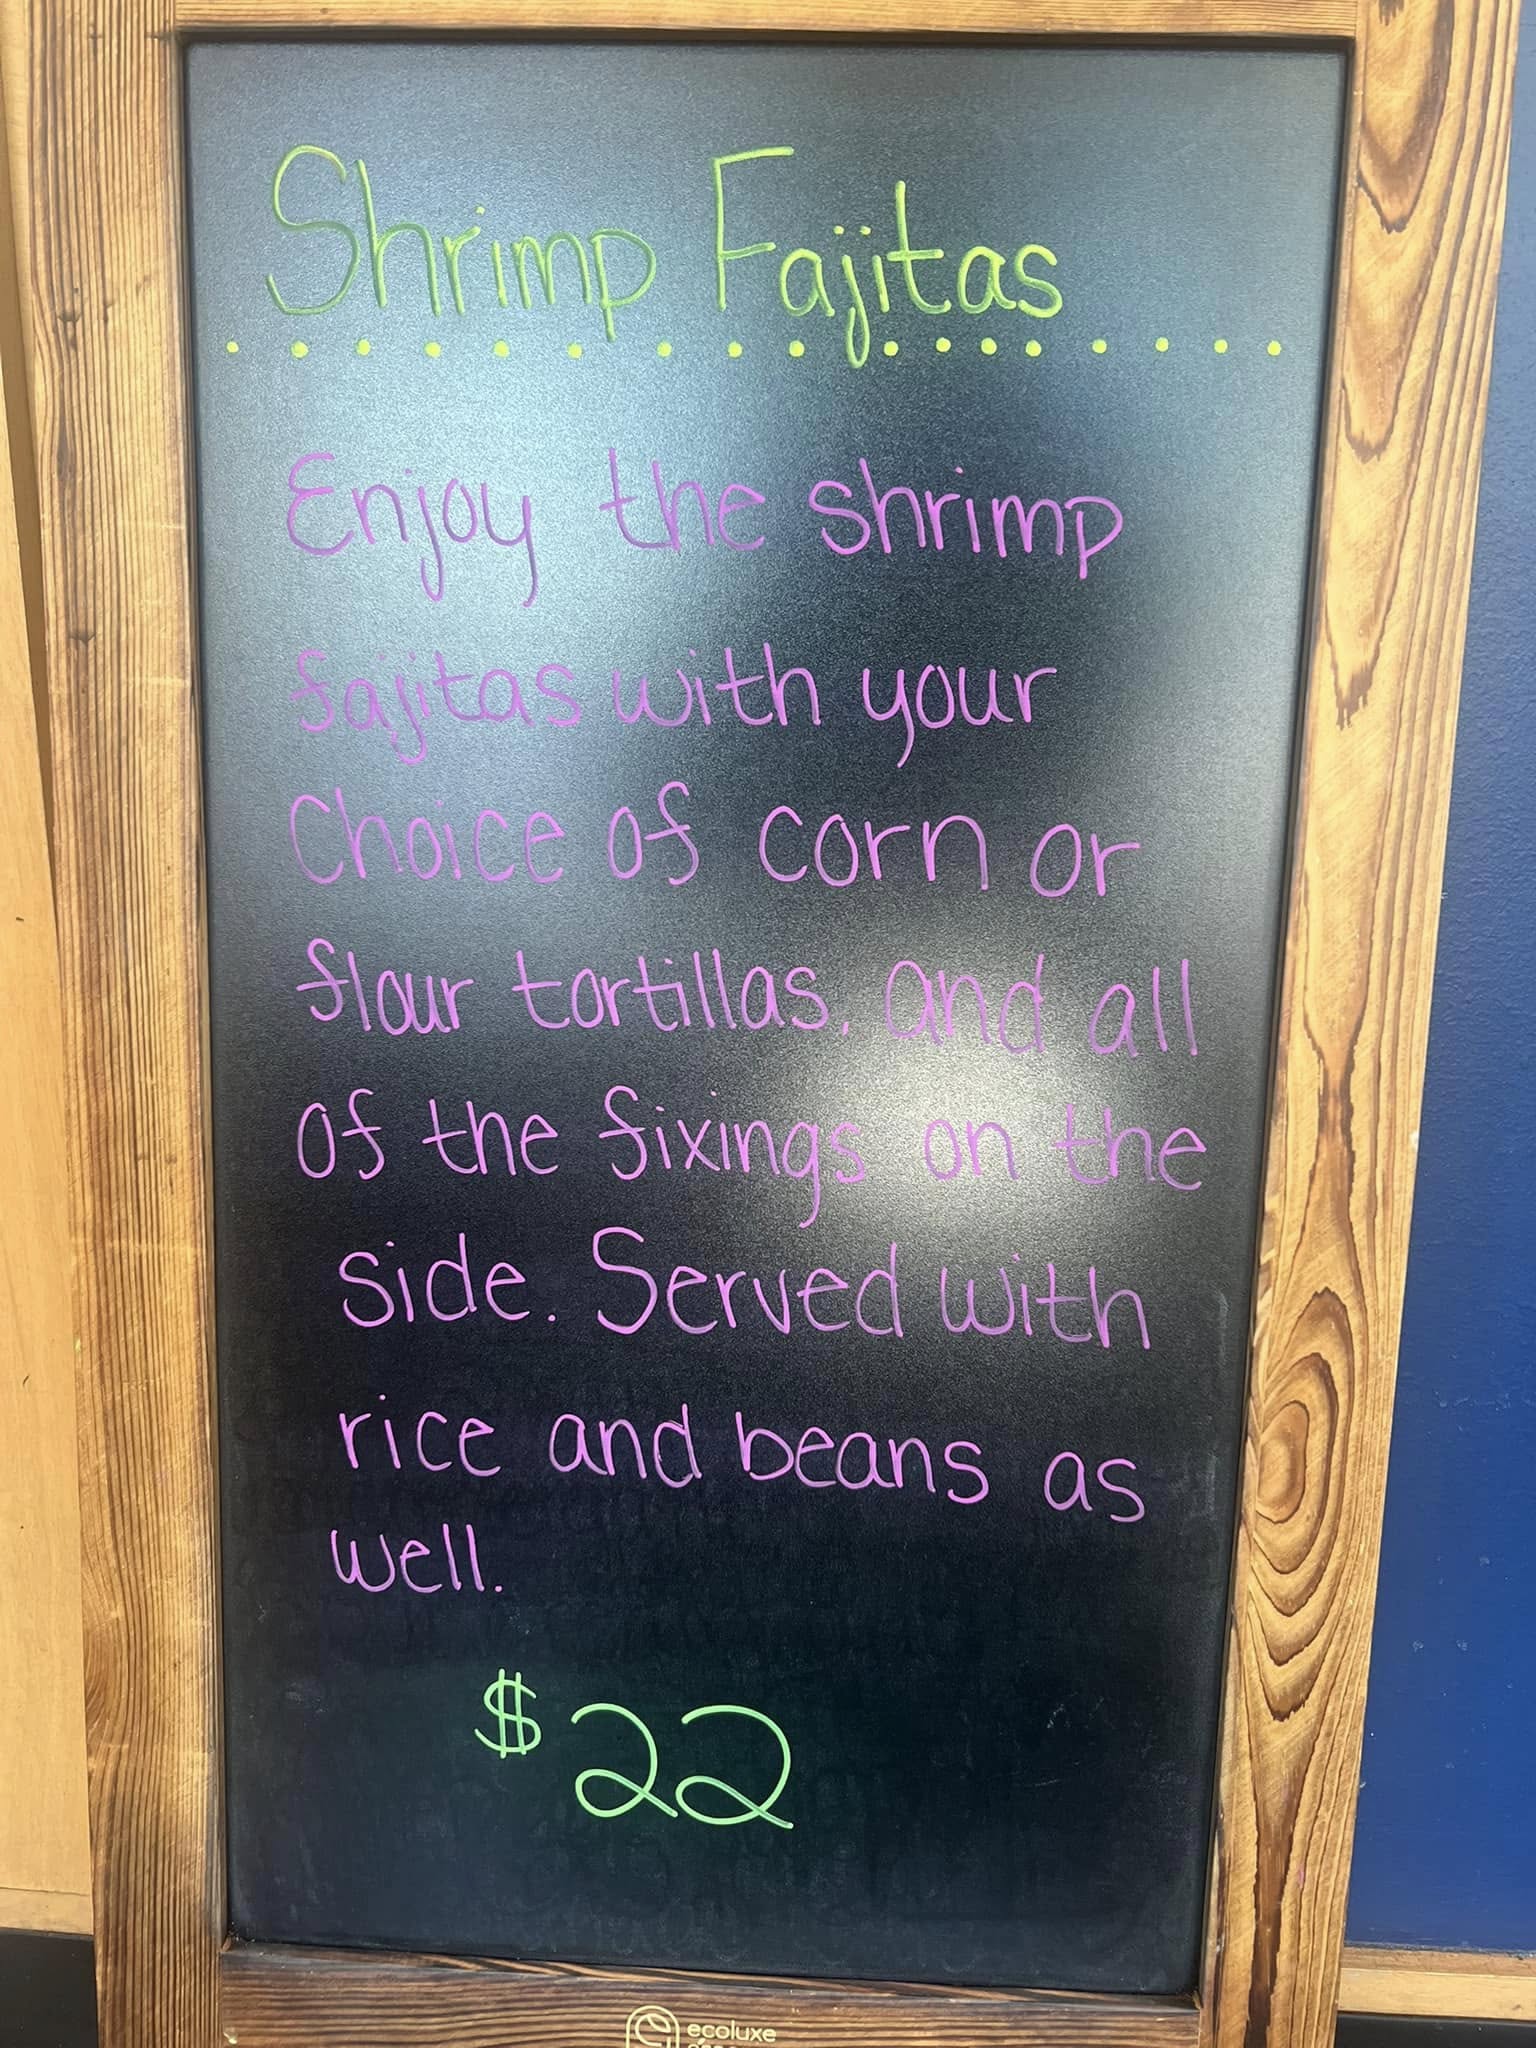 Shrimp Fajitas
Enjoy the shrimp
fajitas with your
Choice of corn or
flour tortillas, and all
of the fixings on the
side. Served with
rice and beans as
well.
$22
ecoluxe